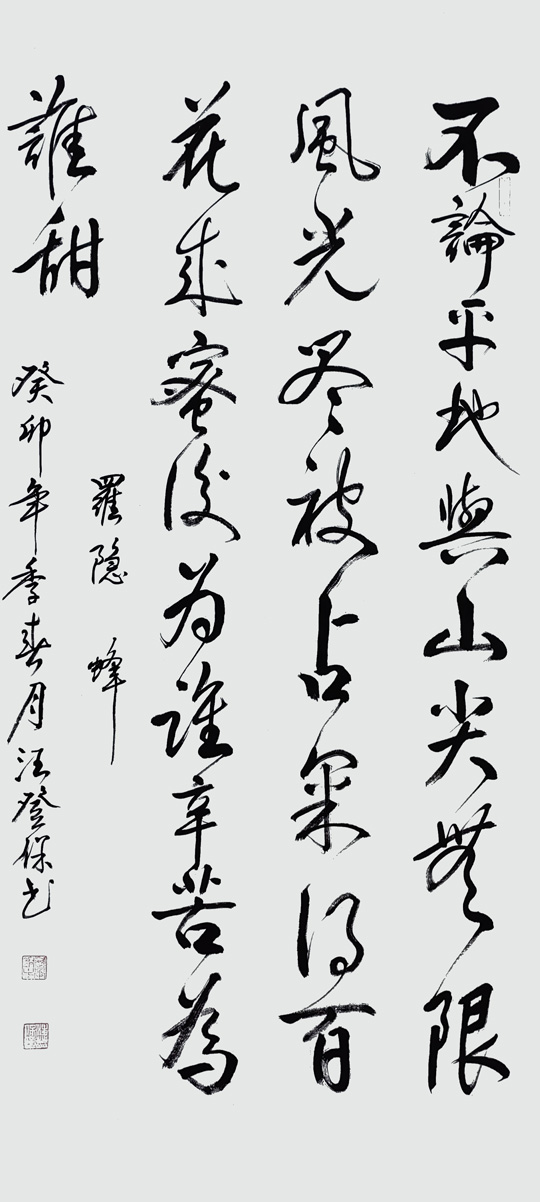 不論平地與山尖無限
風光尽被占采得百
花成蜜後为誰辛苦為
誰甜
羅隐 蜂
癸卯年季春月汪登保书